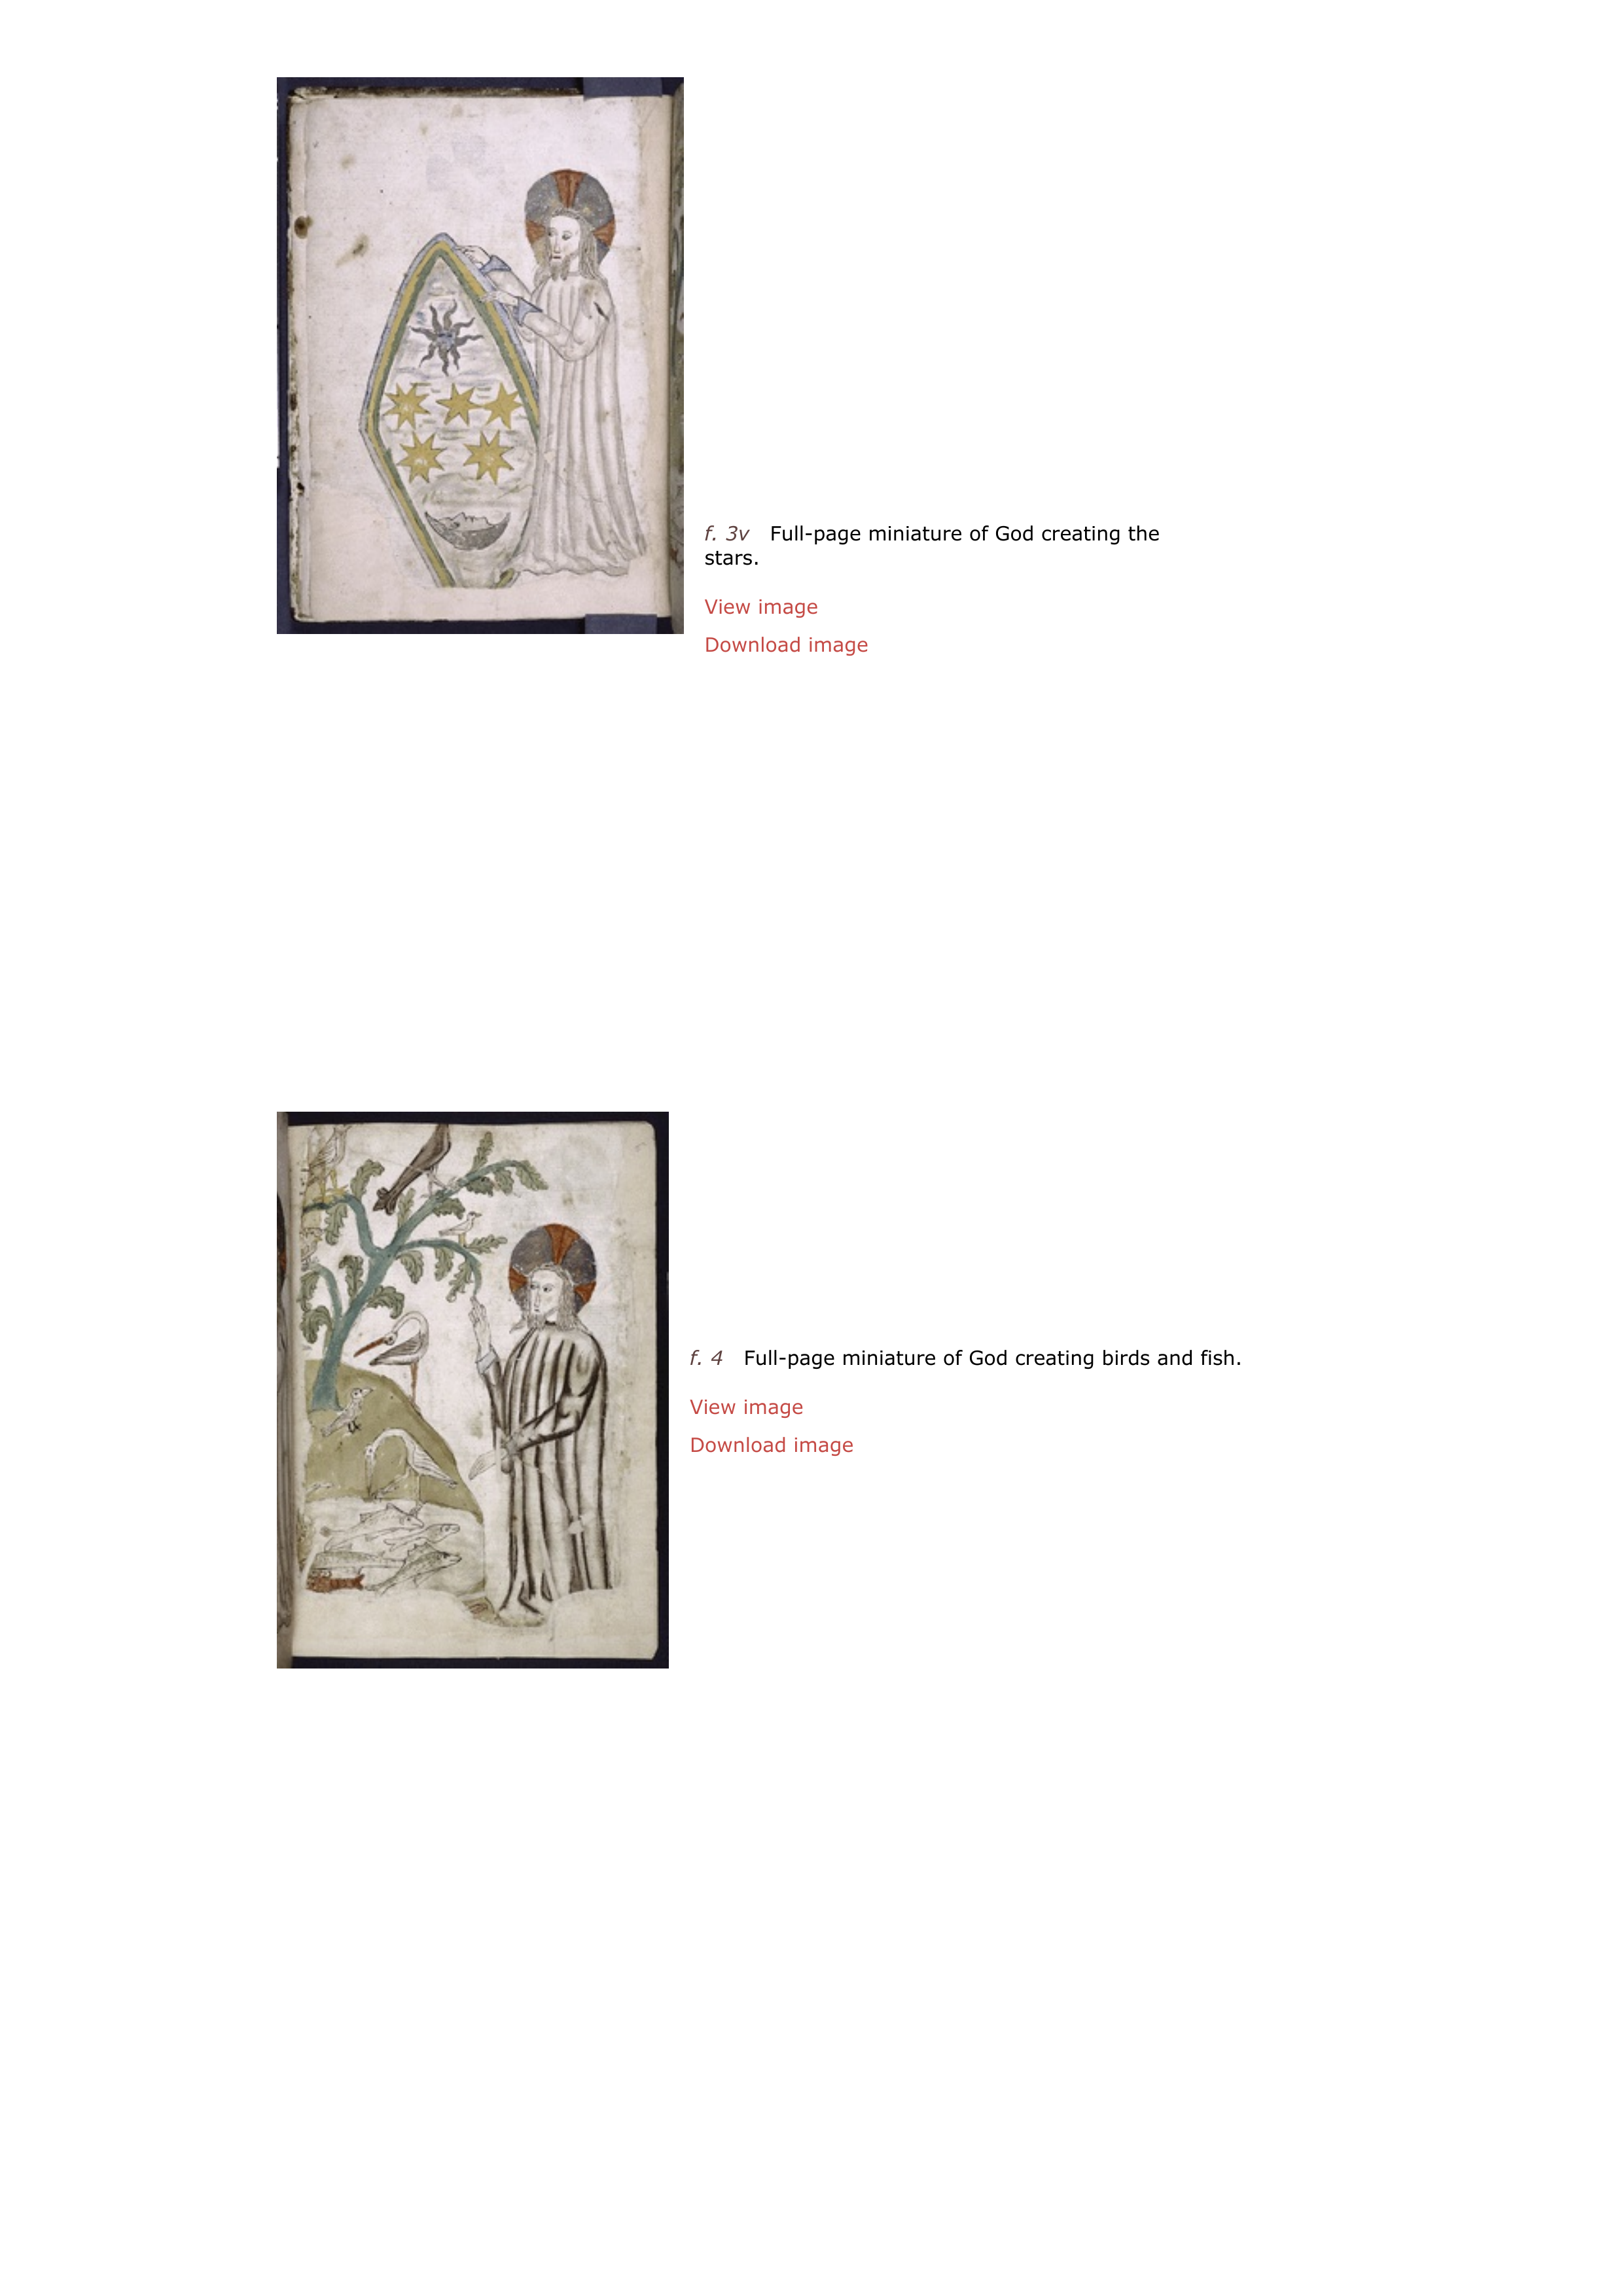 f. 3v Full-page miniature of God creating the
stars.
View image
Download image
f. 4 Full-page miniature of God creating birds and fish.
View image
Download image